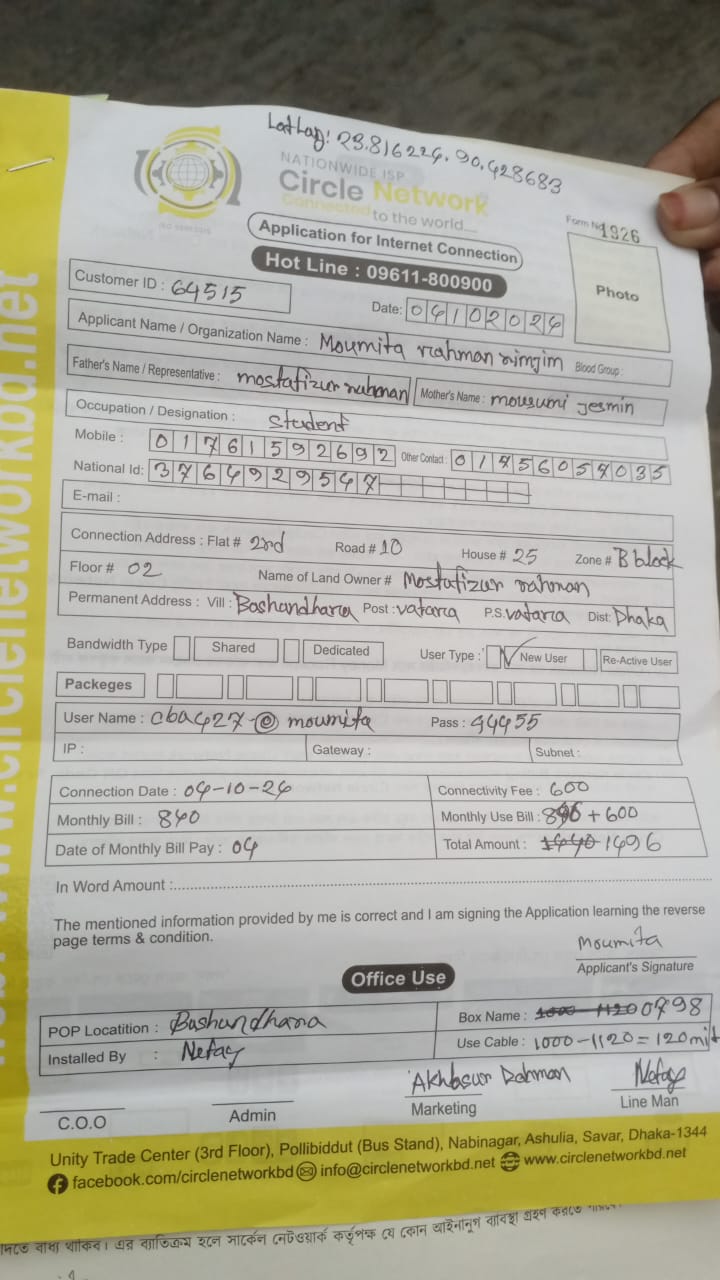 Lat Lag: 23.816224, 90.428683
NATIONWIDE ISP
Circle Network
Connected to the world....
Form No 1926
Application for Internet Connection
Hot Line : 09611-800900
Photo
Customer ID : 64515
Date: 04102024
Applicant Name / Organization Name : Moumita rahman rimjim Blood Group :
Father's Name / Representative : mostafizur rahman Mother's Name : mousumi jesmin
Occupation / Designation : Student
Mobile : 01761592692 Other Contact : 01
National Id: 3764929547
E-mail :
Connection Address : Flat # 2nd Road # 10 House # 25 Zone # B block
Floor # 02 Name of Land Owner # Mostafizur rahman
Permanent Address : Vill : Bashandhara Post : vatara P.S. vatara Dist: Dhaka
Bandwidth Type Shared Dedicated User Type : New User Re-Active User
Packeges
User Name : cba427@moumita Pass : 94455
IP : Gateway : Subnet :
Connection Date : 04-10-24 Connectivity Fee : 600
Monthly Bill : 840 Monthly Use Bill : + 600
Date of Monthly Bill Pay : 04 Total Amount : 1440 1496
In Word Amount :
The mentioned information provided by me is correct and I am signing the Application learning the reverse
page terms & condition.
Moumita
Applicant's Signature
Office Use
POP Locatition : Bashundhara Box Name : 0798
Installed By : Nefay Use Cable : 1000-1120=120mit
Akhlasur Rahman Nefay
C.O.O Admin Marketing Line Man
Unity Trade Center (3rd Floor), Pollibiddut (Bus Stand), Nabinagar, Ashulia, Savar, Dhaka-1344
facebook.com/circlenetworkbd info@circlenetworkbd.net www.circlenetworkbd.net
দিতে বাধ্য থাকিব। এর ব্যতিক্রম হলে সার্কেল নেটওয়ার্ক কর্তৃপক্ষ যে কোন আইনানুগ ব্যবস্থা গ্রহণ করতে
www.circlenetworkbd.net